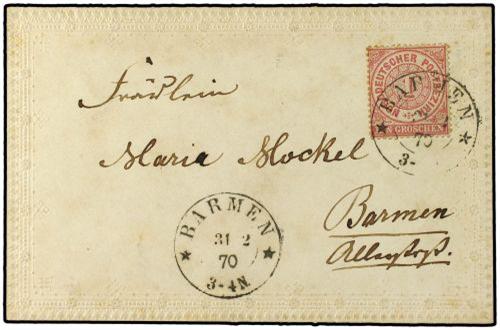 NORDDEUTSCHER POSTBEZIRK
GROSCHEN
BARMEN
70
3-
Fräulein
Maria Mockel
BARMEN
31 2
70
3-4N.
Barmen